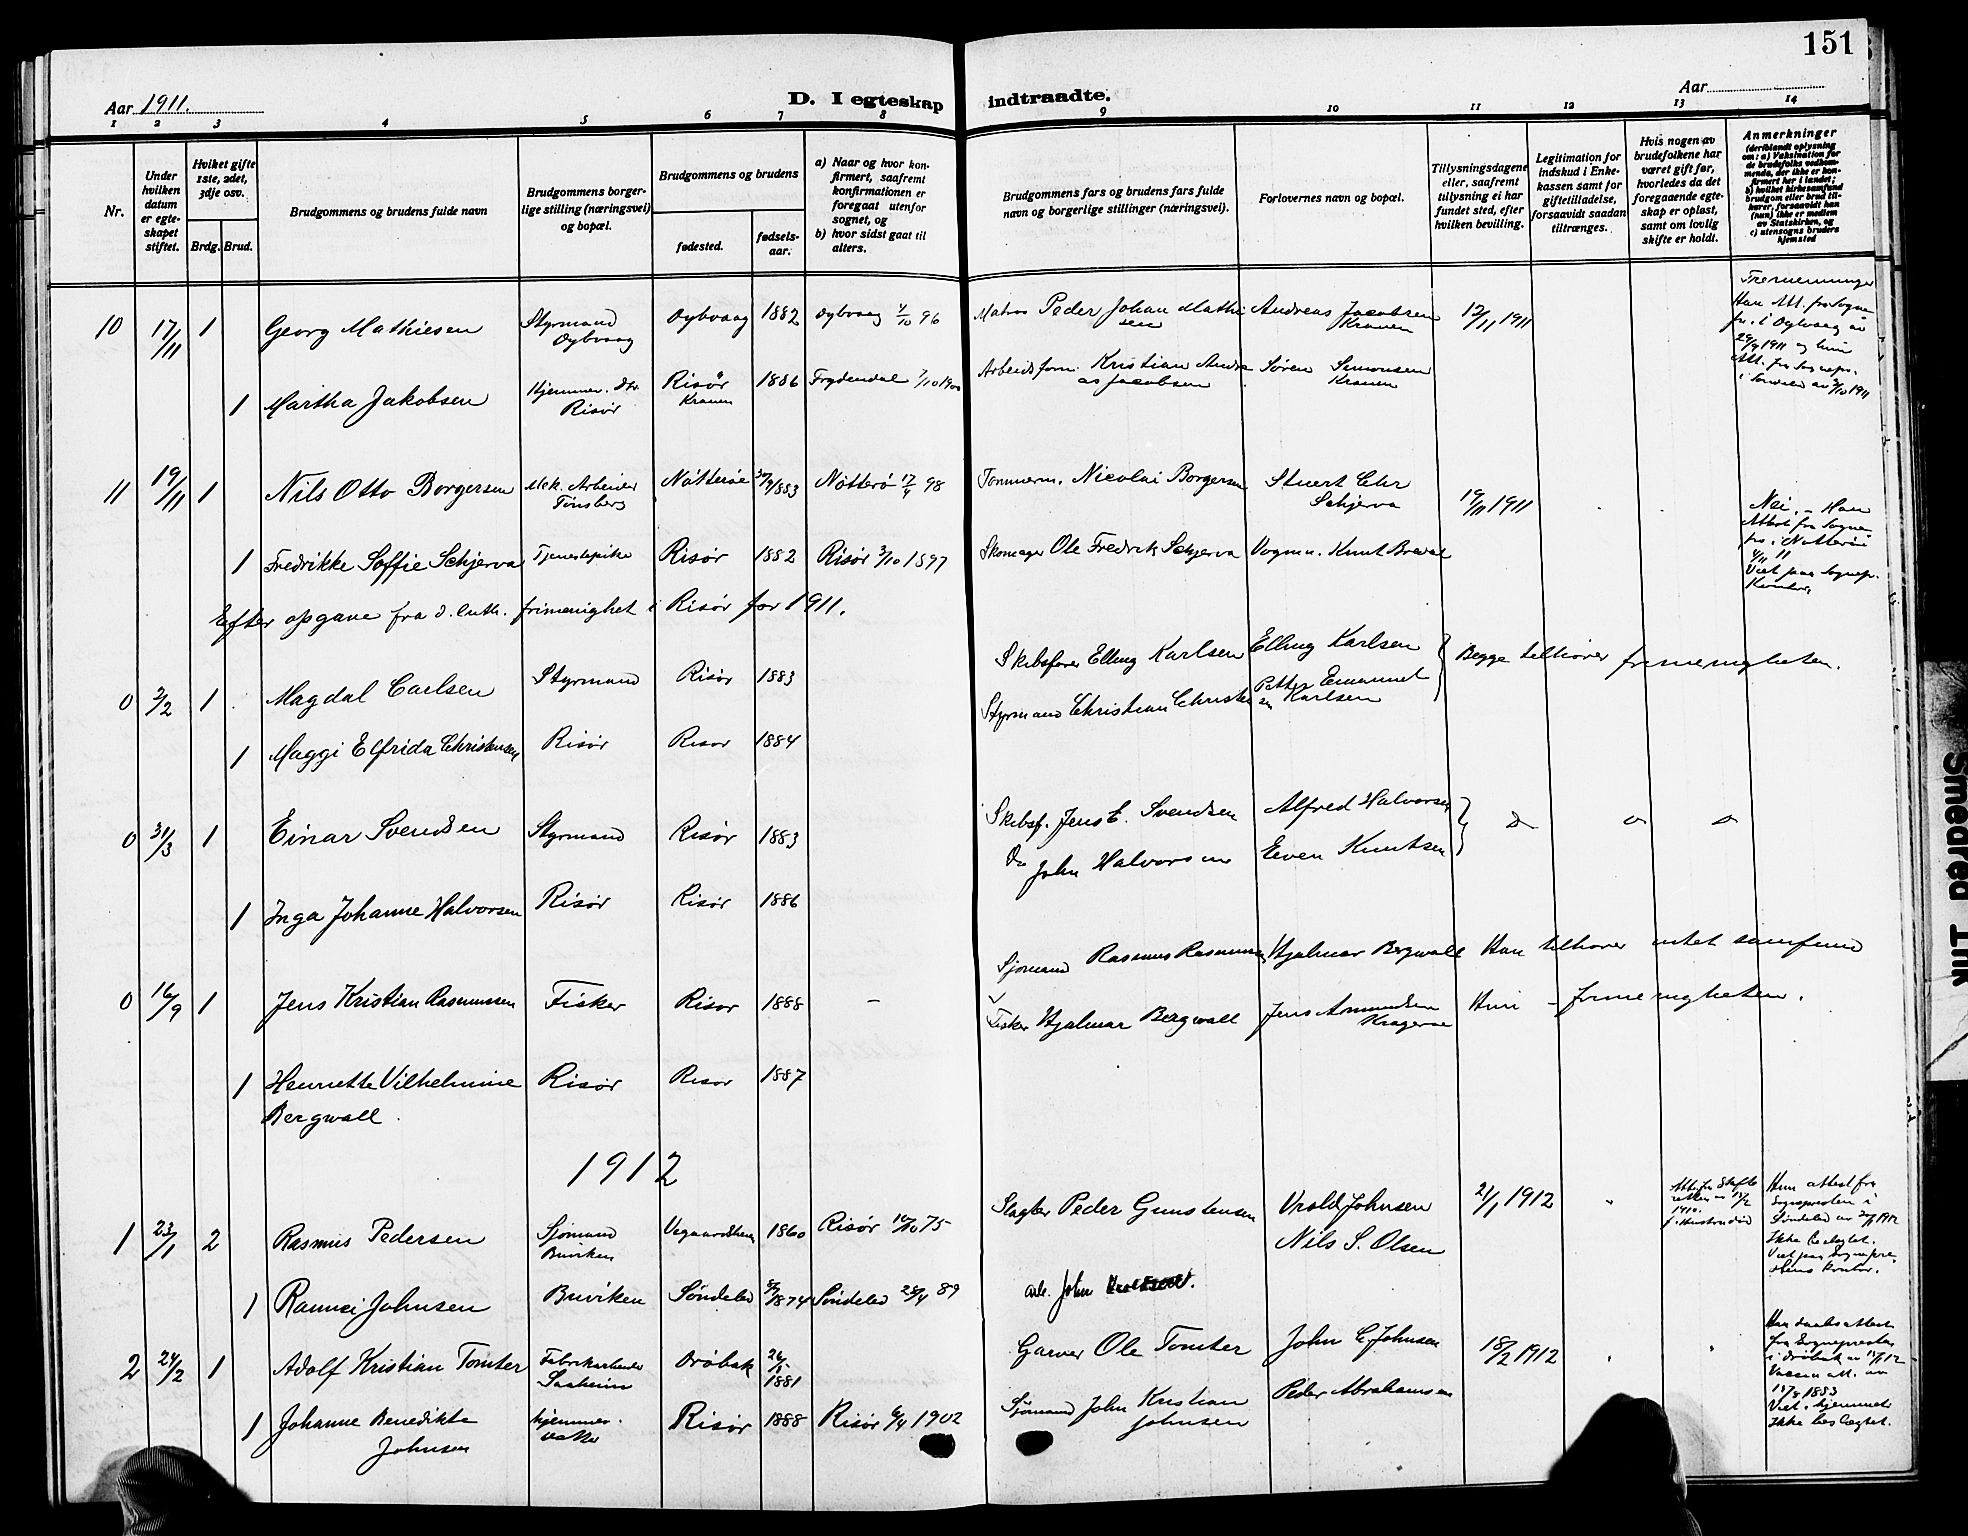 151
Aar 1911.
D. I egteskap indtraadte.
Aar
1 2 3 4 5 6 7 8 9 10 11 12 13 14
Nr.
Under hvilken datum er egteskapet stiftet.
Hvilket gifte 1ste, 2det, 3dje osv.
Brdg. Brud.
Brudgommens og brudens fulde navn
Brudgommens borgerlige stilling (næringsvei) og bopæl.
Brudgommens og brudens
fødested.
fødselsaar.
a) Naar og hvor konfirmert, saafremt konfirmationen er foregaat utenfor sognet, og
b) hvor sidst gaat til alters.
Brudgommens fars og brudens fars fulde navn og borgerlige stillinger (næringsvei).
Forlovernes navn og bopæl.
Tillysningsdagene eller, saafremt tillysning ei har fundet sted, efter hvilken bevilling.
Legitimation for indskud i Enkekassen samt for giftetilladelse, forsaavidt saadan tiltrænges.
Hvis nogen av brudefolkene har været gift før, hvorledes da det foregaaende egteskap er opløst, samt om lovlig skifte er holdt.
Anmerkninger (deriblandt oplysning om: a) Vaksination for de brudefolks vedkommende, der ikke er konfirmert her i landet; b) hvilket kirkesamfund brudgom eller brud tilhører, forsaavidt han (hun) ikke er medlem av Statskirken, og c) utensogns bruders hjemsted
10 17/11 1 Georg Mathiesen Styrmand Dybvaag Dybvaag 1882 Dybvaag 4/10 96 Matros Peder Johan Mathisen Andreas Jacobsen Kranen 12/11 1911
Tremenninger Han Att. fra Sognepr. i Dybvaag av 29/9 1911 og hun Att. fra Sognepr. i Søndeled av 3/10 1911
1 Martha Jakobsen Hjemmev. dtr. Risør Risør Kranen 1886 Frydendal 7/10 1900 Arbeidsform. Kristian Andreas Jacobsen Søren Simonsen Kranen
11 19/11 1 Nils Otto Borgersen Mek. Arbeider Tønsberg Nøtterøe 30/9 1883 Nøtterø 17/4 98 Tømmerm. Nicolai Borgersen Stuert Chr Schjerva 19/11 1911
Nei. – Han Attest fra Sognepr. i Nøtterøe 4/11 11 Viet paa Sognepr. Kontor
1 Fredrikke Soffie Schjerva Tjenestepike Risør 1882 Risør 3/10 1897 Skomager Ole Fredrik Schjerva Vognm. Knut Brevat
Efter opgave fra d. luth. frimenighet i Risør for 1911.
0 2/2 1 Magdal Carlsen Styrmand Risør 1883 Skibsfører Elling Karlsen Elling Karlsen Begge tilhører frimenigheten.
1 Maggi Elfrida Christensen Risør Risør 1884 Styrmand Christian Christensen Petter Emanuel Karlsen
0 31/3 1 Einar Svendsen Styrmand Risør 1883 Skibsf. Jens E. Svendsen Alfred Halvorsen
1 Inga Johanne Halvorsen Risør Risør 1886 Do John Halvorsen Even Knutsen
0 16/9 1 Jens Kristian Rasmussen Fisker Risør 1888 – Sjømand Rasmus Rasmussen Hjalmar Bergwall Han tilhører intet samfund
1 Henriette Vilhelmine Bergwall. Risør Risør 1887 Fisker Hjalmar Bergwall Jens Amundsen Kragerø Hun – frimenigheten.
1912
1 23/1 2 Rasmus Pedersen Sjømand Buviken Vegaardsheien 1860 Risør 10/10 75 Slagter Peder Gunstensen Vrold Johnsen 21/1 1912
Hun attest fra Sognepresten i Søndeled av 20/1 1912 Ikke beslegtet. Viet paa Sogneprestens kontor.
Nils S. Olsen
1 Rannei Johnsen Buviken Søndeled 1874 Søndeled 28/4 89 arb. John
2 24/2 1 Adolf Kristian Tomter Fabrikarbeider Saaheim Drøbak 26/5 1881 Garver Ole Tomter John C. Johnsen 18/2 1912
Han daabsattest fra Sognepresten i Drøbak Ikke beslegtet.
1 Johanne Benedikte Johnsen Hjemmev. datter Risør 1888 Risør 6/4 1902 Sjømand John Kristian Johnsen Peder Abrahamsen
Smeared Ink